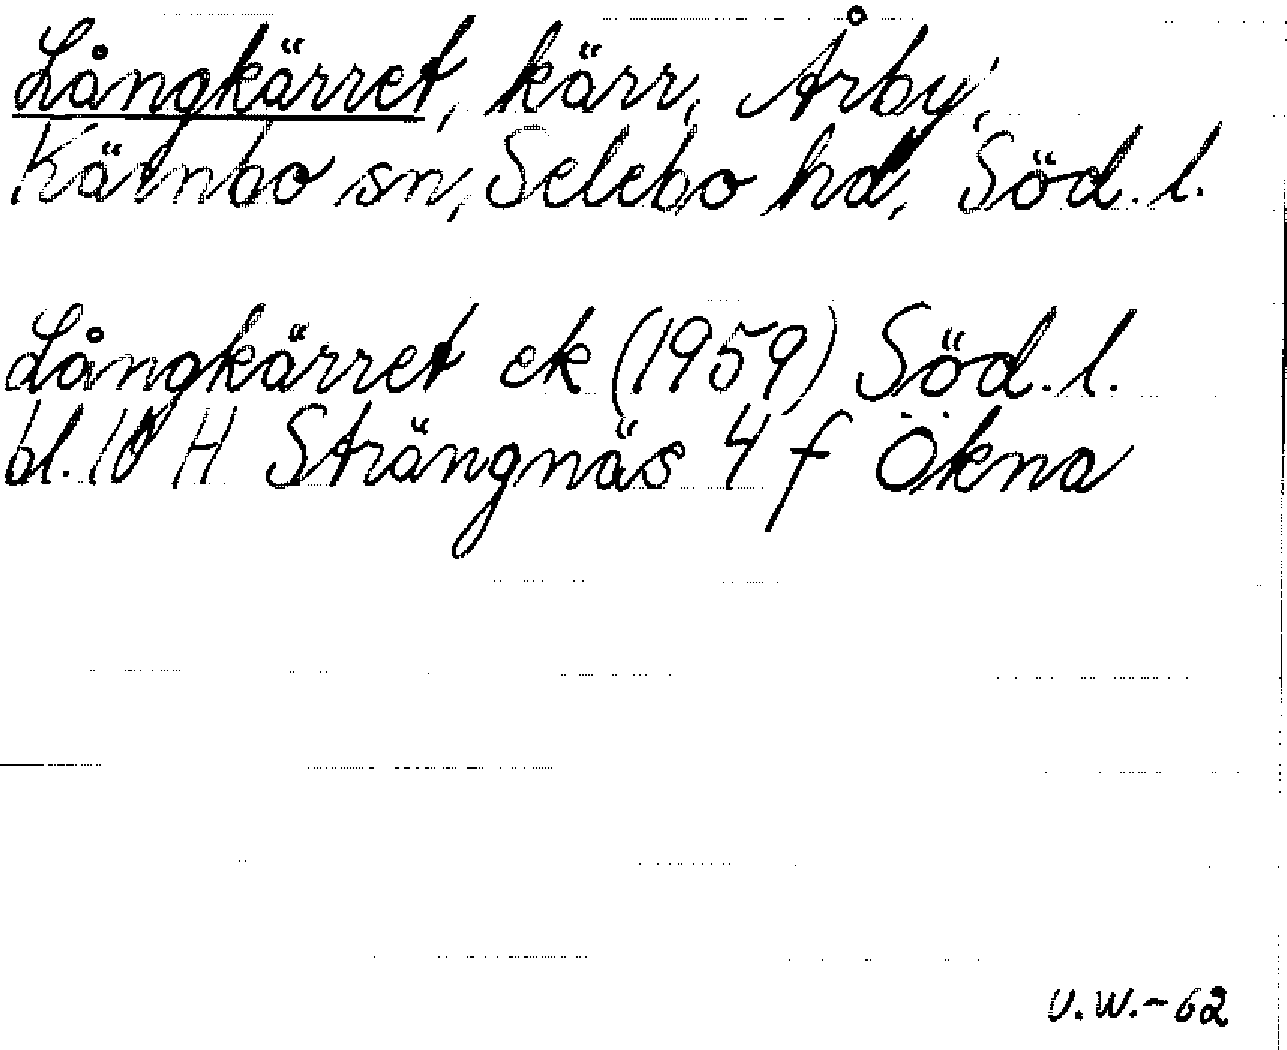 Långkärret, kärr, Årby,
Kärnbo sn, Selebo hd, Söd. l.
Långkärret ek (1959) Söd. l.
bl. 10 H Strängnäs 4 f Ökna
U.W.-62